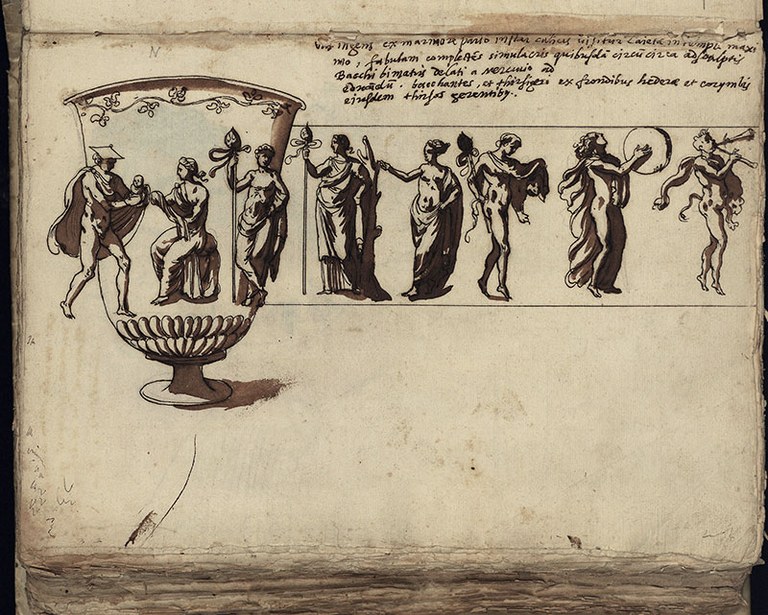 ingens ex marmore pario instar calicis visitur Caietae in templo maxi
mo, fabulam complectēs simulacris quibusdā circūcirca adsculptis
Bacchi bimatris delati a Mercurio ad
bacchantes, et thirsigeri ex frondibus hederae et corymbis
eiusdem thirsos gerentibꝫ.
N